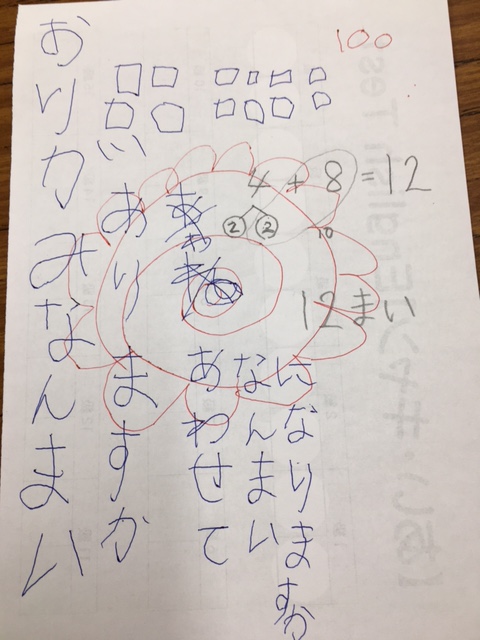 100
おりがみなんまい
ありますか
あわせて
なんまい
になりますか
4+8=12
② ②
10
12まい